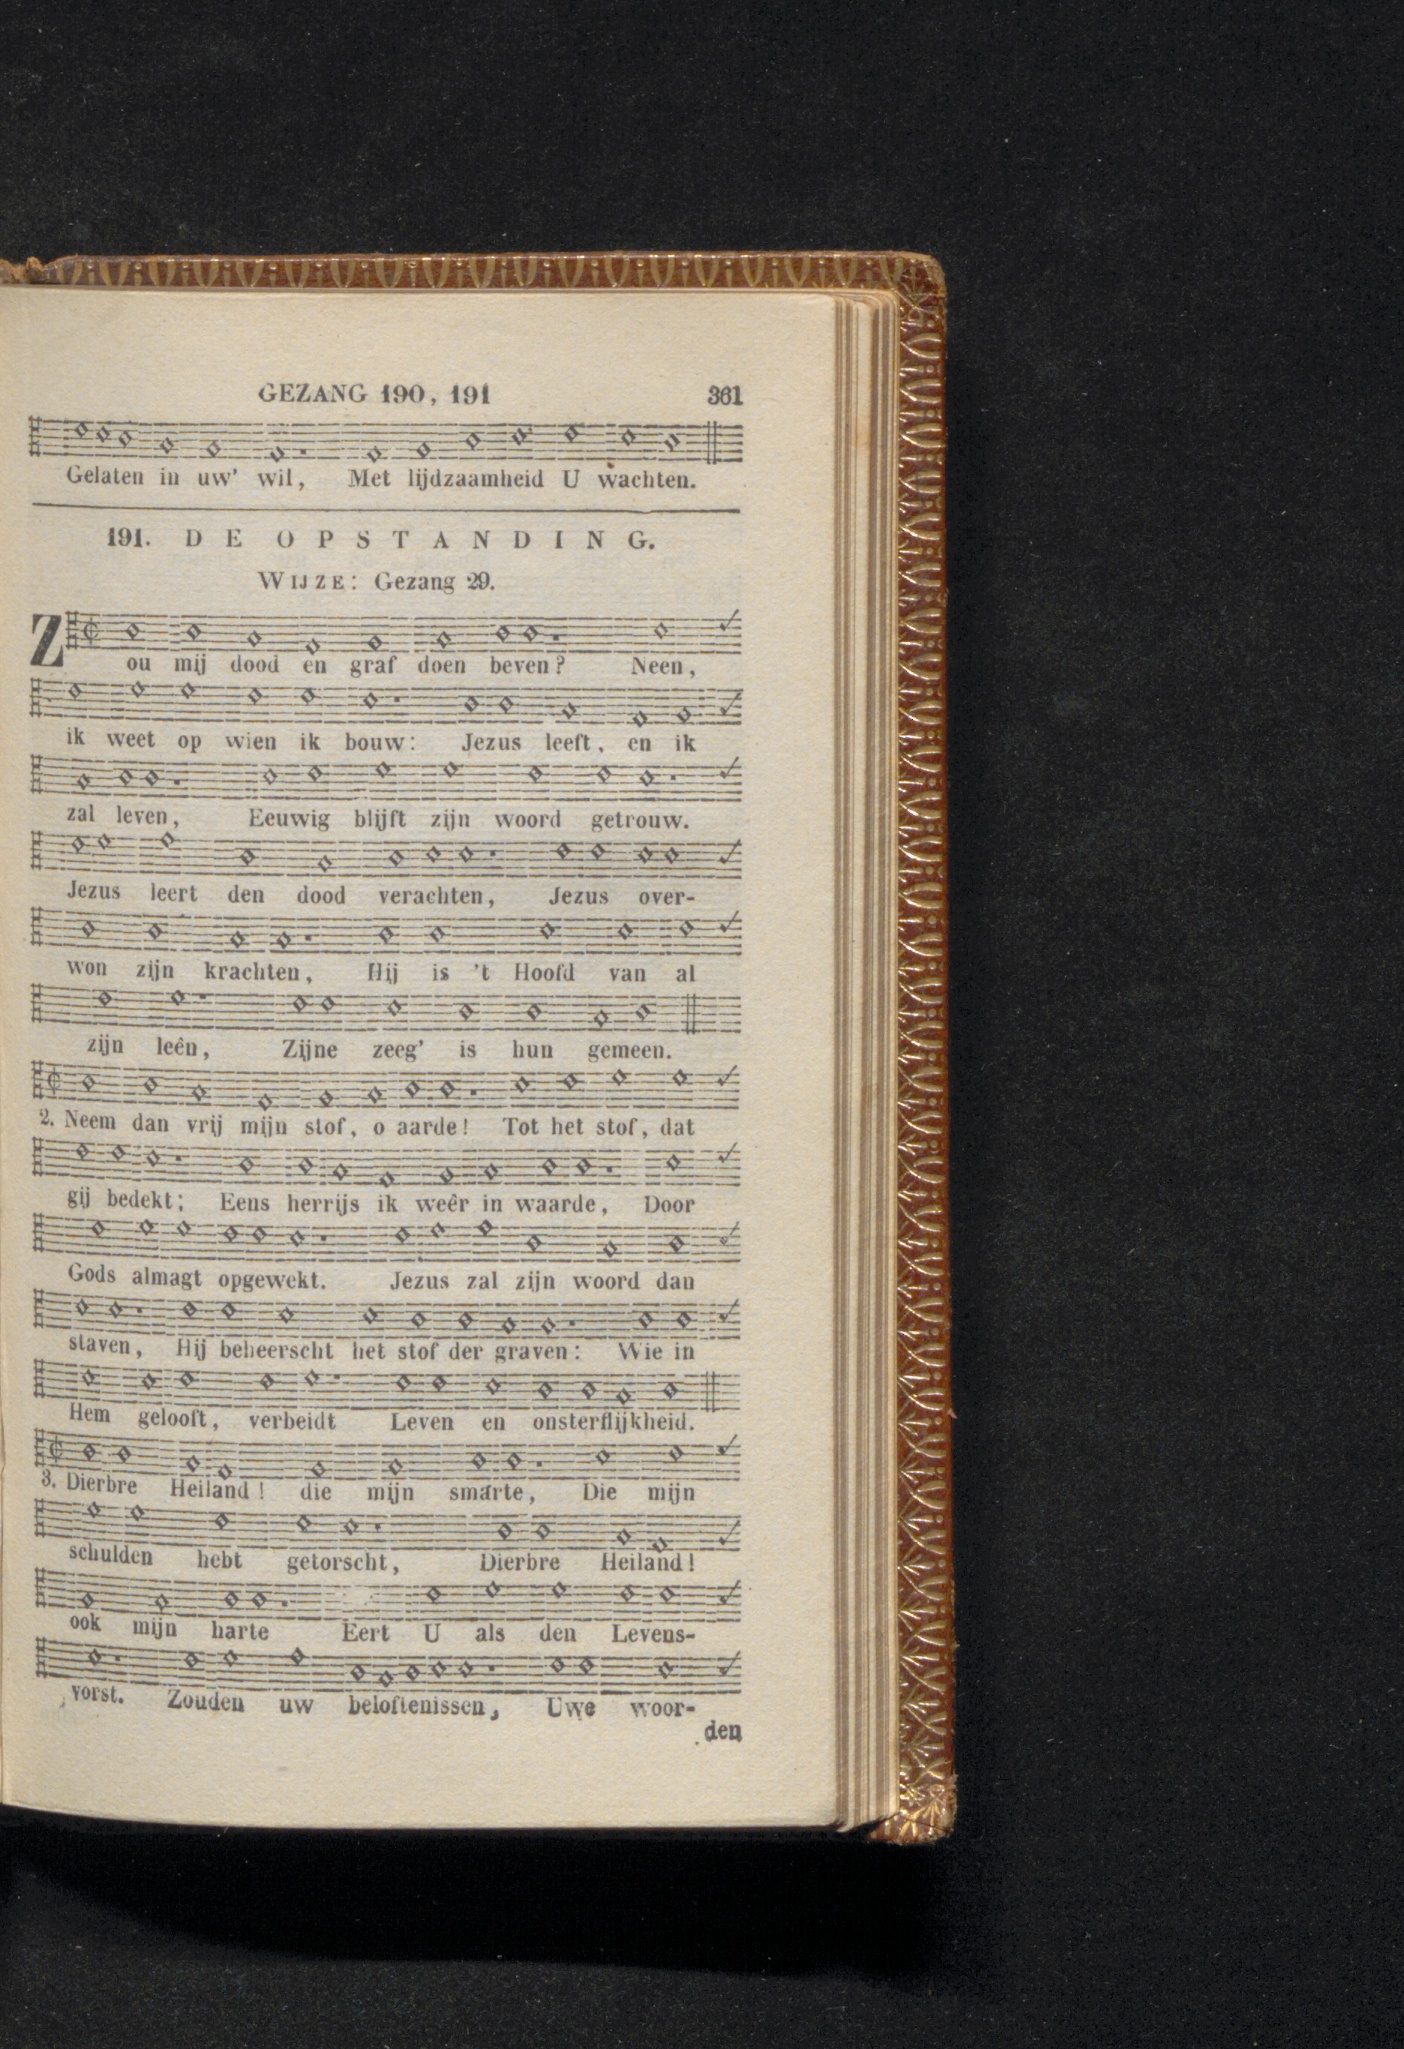 GEZANG 190, 191 361
Gelaten in uw' wil, Met lijdzaamheid U wachten.
191. DE OPSTANDING.
WIJZE: Gezang 29.
Zou mij dood en graf doen beven? Neen,
ik weet op wien ik bouw: Jezus leeft, en ik
zal leven, Eeuwig blijft zijn woord getrouw.
Jezus leert den dood verachten, Jezus over-
won zijn krachten, Hij is 't Hoofd van al
zijn leên, Zijne zeeg' is hun gemeen.
2. Neem dan vrij mijn stof, o aarde! Tot het stof, dat
gij bedekt; Eens herrijs ik weêr in waarde, Door
Gods almagt opgewekt. Jezus zal zijn woord dan
staven, Hij beheerscht het stof der graven: Wie in
Hem gelooft, verbeidt Leven en onsterflijkheid.
3. Dierbre Heiland! die mijn smarte, Die mijn
schulden hebt getorscht, Dierbre Heiland!
ook mijn harte Eert U als den Levens-
vorst. Zouden uw beloftenissen, Uwe woor-
den